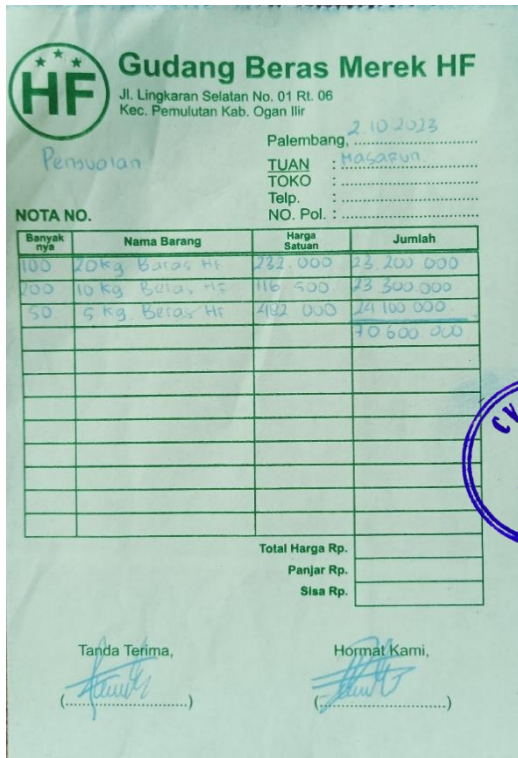 HF
Gudang Beras Merek HF
Jl. Lingkaran Selatan No. 01 Rt. 06
Kec. Pemulutan Kab. Ogan Ilir
Palembang, 2.10.2023
Penjualan
TUAN :
TOKO :
Telp. :
NOTA NO.
NO. Pol. :
Banyak nya Nama Barang Harga Satuan Jumlah
100 20kg Beras HF 232.000 23.200 000
200 10 kg Beras HF 116.500 23 300.000
50. 5 kg Beras HF 482 000 24 100 000
70 600 000
Total Harga Rp.
Panjar Rp.
Sisa Rp.
Tanda Terima, Hormat Kami,
CV